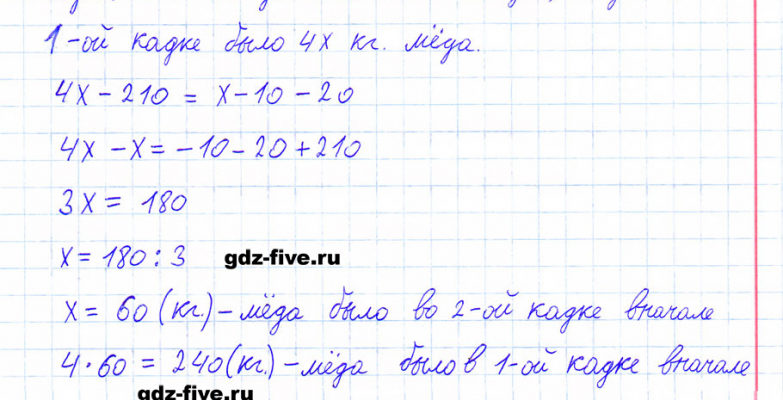 1-ой кадке было 4х кг. мёда.
4х - 210 = х - 10 - 20
4х - х = - 10 - 20 + 210
3х = 180
х = 180 : 3 gdz-five.ru
х = 60 (кг.) - мёда было во 2-ой кадке вначале
4 · 60 = 240 (кг.) - мёда было в 1-ой кадке вначале
gdz-five.ru